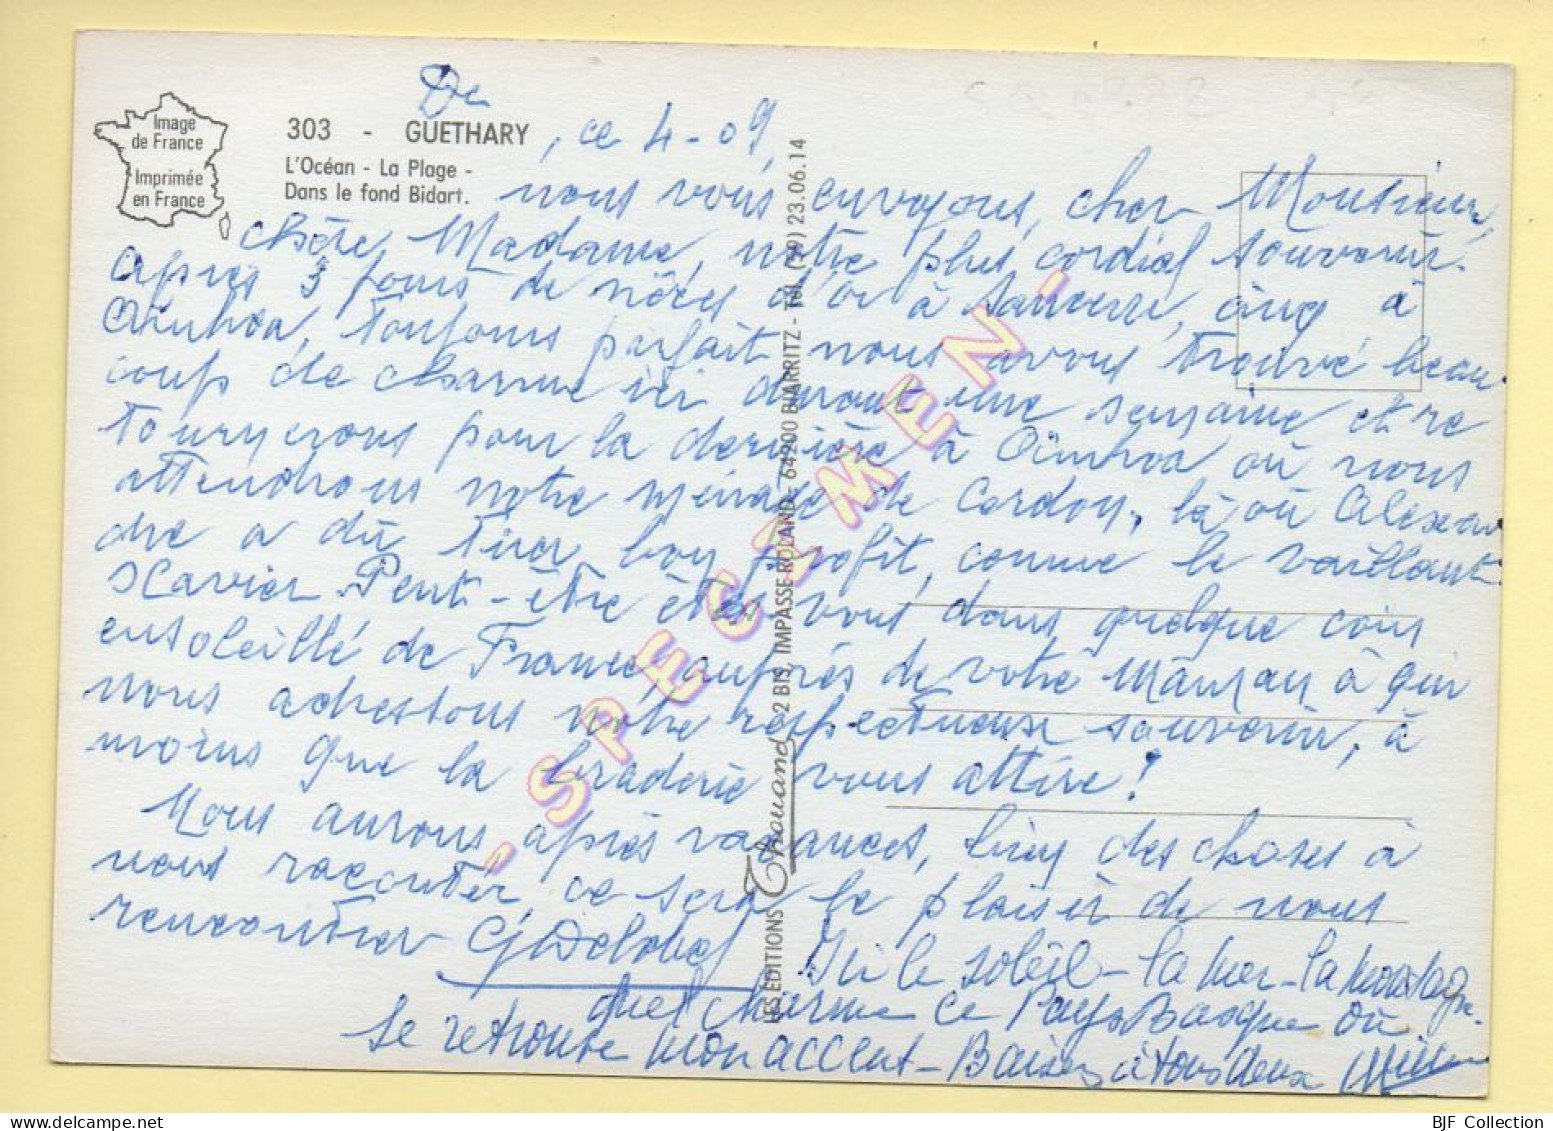 Image
de France
Imprimée
en France
303 - GUETHARY
L'Océan - La Plage -
Dans le fond Bidart.
De
, ce 4-09,
nous vous envoyons, cher Monsieur,
chère Madame, notre plus cordial souvenir.
Après 3 jours de à Sancerre, cinq à
Aïnhoa, toujours parfait nous avons trouvé beau
coup de charme ici durant une semaine et re
tournerons pour la dernière à Aïnhoa où nous
attendrons notre ménage de Cordon, là où Alexan
dre a dû tirer bon profit, comme le vaillant
Xavier. Peut-être êtes vous dans quelque coin
ensoleillé de France, auprès de votre Maman à qui
nous adressons notre respectueux souvenir, à
moins que la braderie vous attire!
Nous aurons, après vacances, bien des choses à
nous raconter, ce sera le plaisir de nous
rencontrer
Ici le soleil - la mer - la montagne.
quel charme ce Pays Basque où
se retrouve mon accent - Baisers à tous deux
LES EDITIONS Thouand 2 BIS, IMPASSE ROLAND - 64200 BIARRITZ - Tél. (59) 23.06.14
- SPECIMEN -
BJF Collection